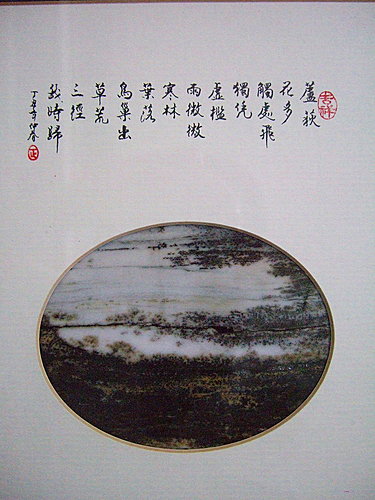 吉祥
蘆荻
花多
觸處飛
獨凭
虛檻
雨微微
寒林
葉落
鳥巢出
草荒
三徑
幾時歸
丁丑年仲春